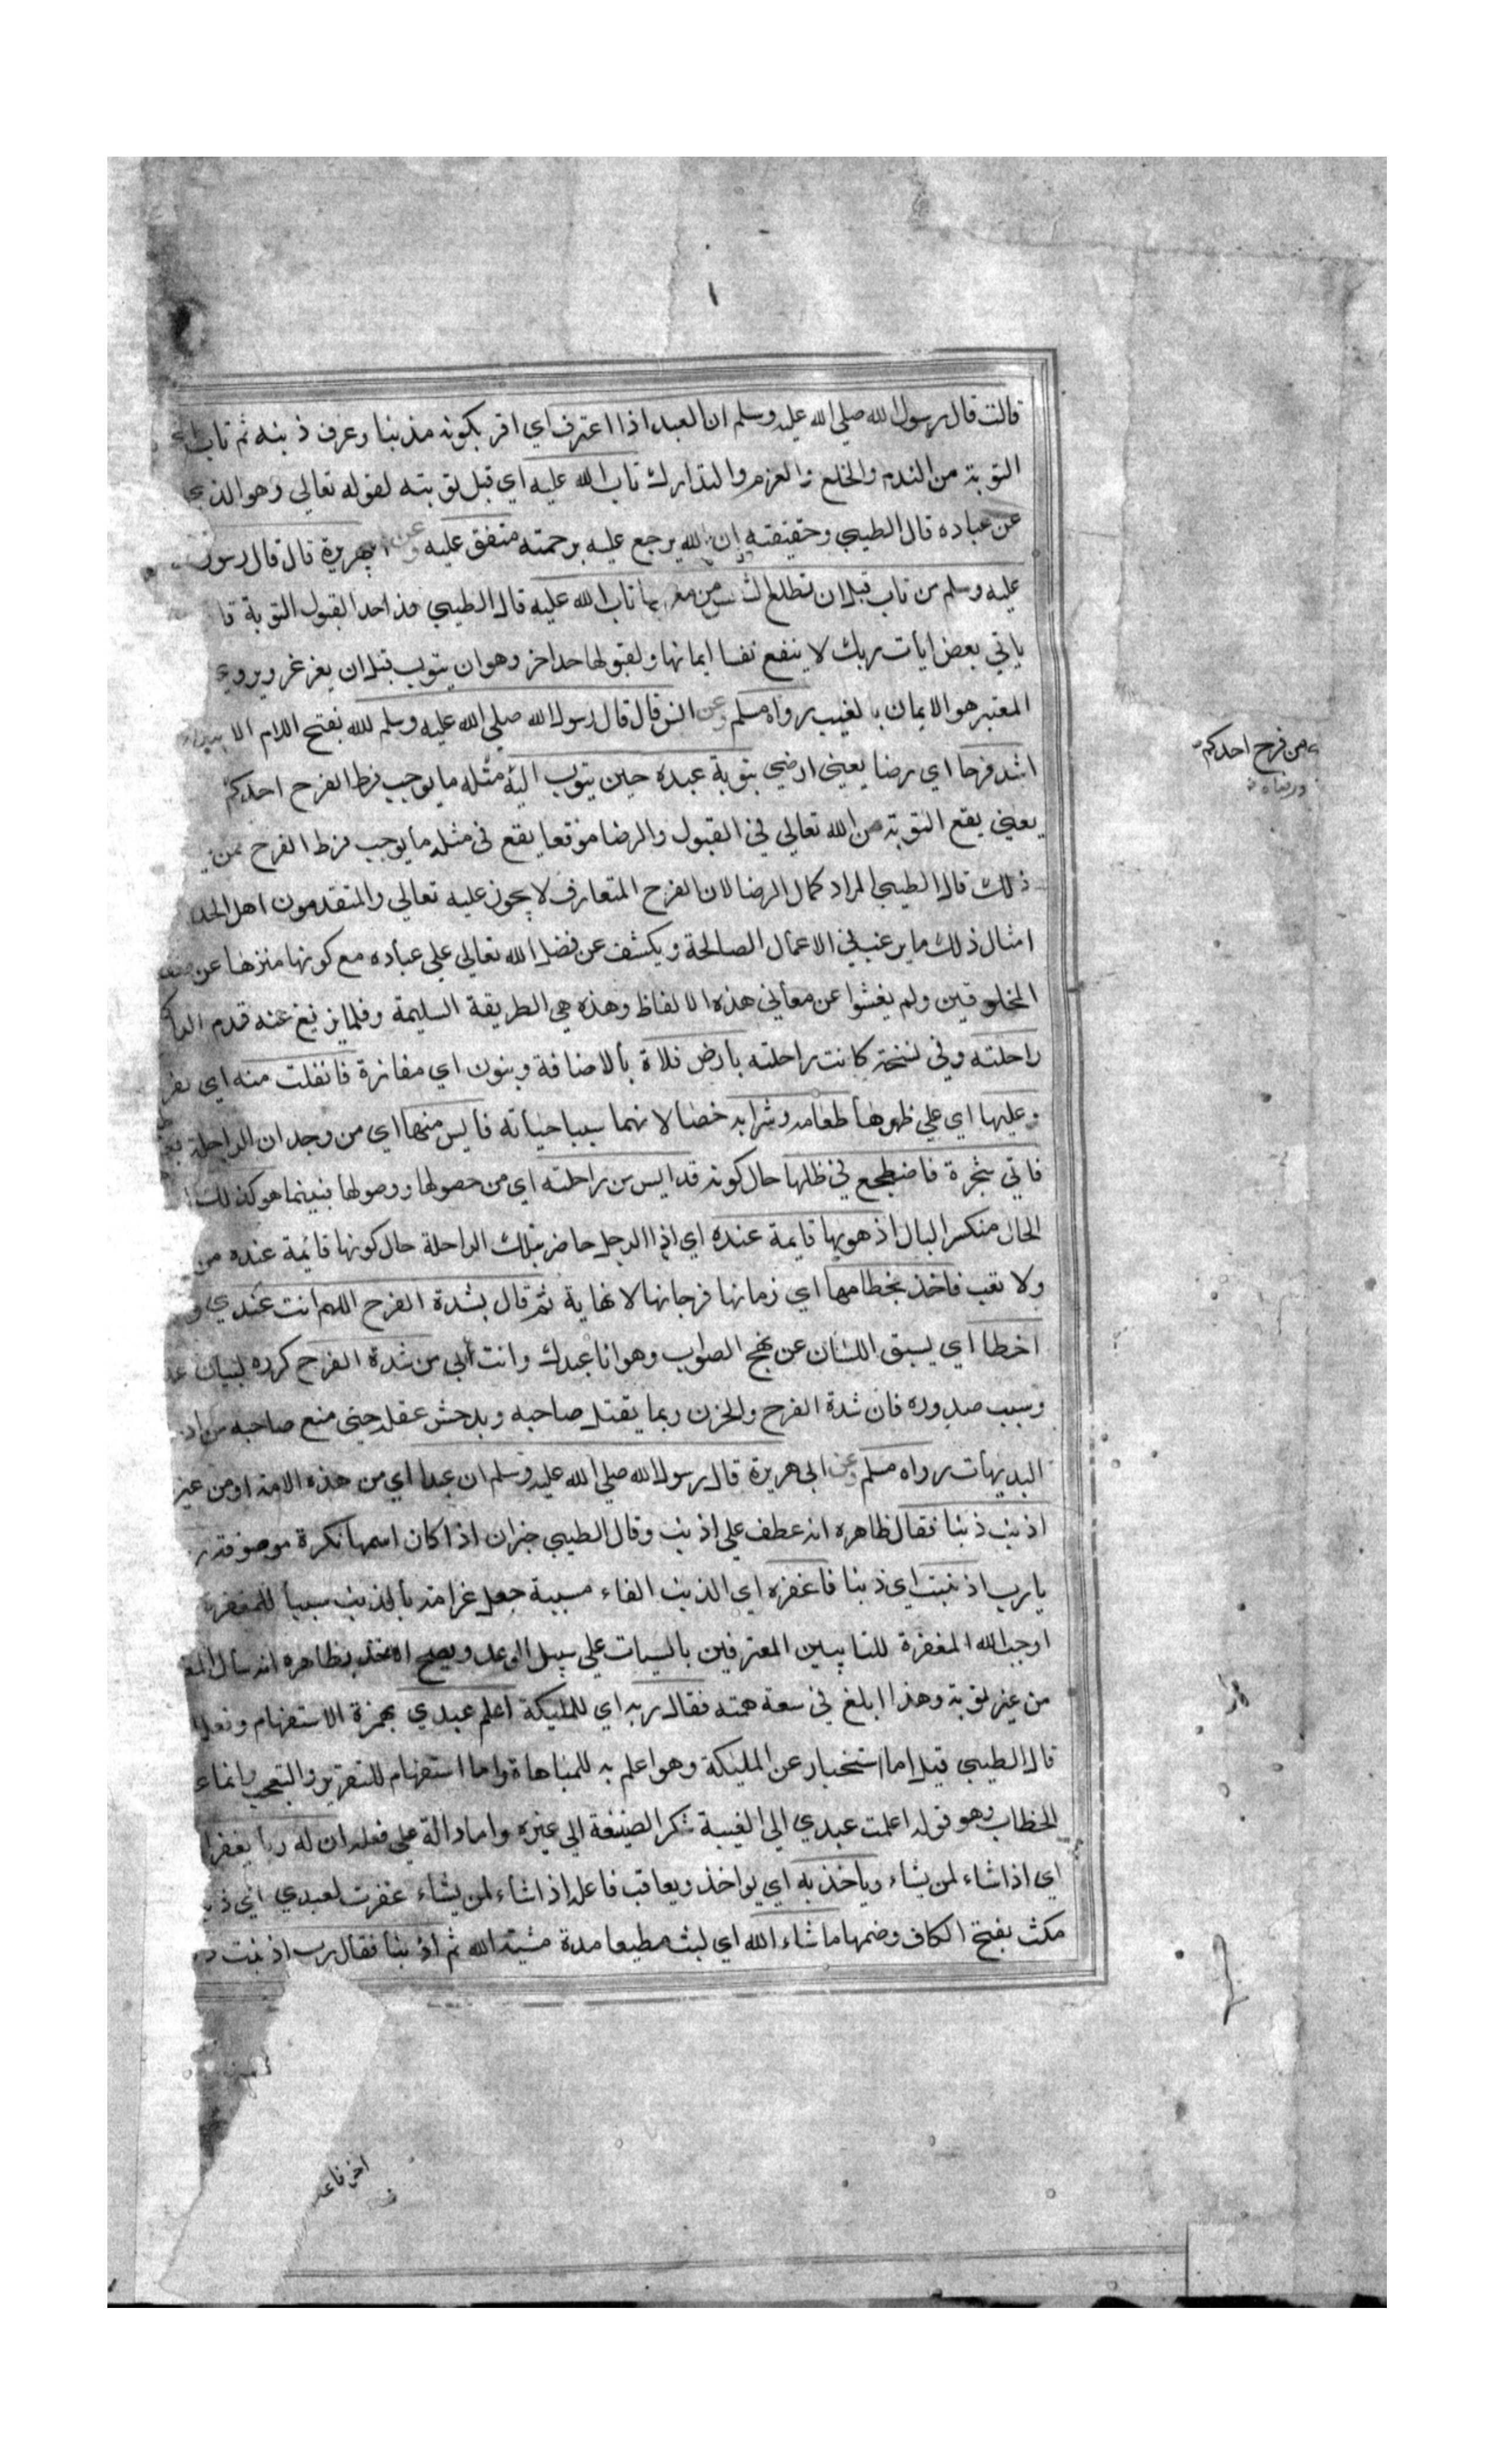 ١
قالت قال رسول الله صلي الله عليه وسلم ان العبد اذا اعترف اي اقر بكونه مذنبا وعرف ذنبه ثم تاب
التوبة من الندم والخلع والعزم والتدارك تاب الله عليه اي قبل توبته لقوله تعالي وهو الذي
عن عباده قال الطيبي وحقيقته ان الله يرجع عليه برحمته متفق عليه وعن ابي هريرة قال قال رسول
عليه وسلم من تاب قبل ان تطلع الشمس من مغربها تاب الله عليه قال الطيبي هذا حد القبول التوبة
ياتي بعض ايات ربك لا ينفع نفسا ايمانها ولقبولها حد اخر وهو ان يتوب قبل ان يغرغر ويروي
المعتبر هو الايمان بالغيب رواه مسلم وعن انس قال قال رسول الله صلي الله عليه وسلم لله بفتح اللام
اشد فرحا اي رضا يعني ارضي بتوبة عبده حين يتوب اليه مثله ما يوجب فرط الفرح احدكم
من فرح احدكم
يعني يقع التوبة من الله تعالي في القبول والرضا موقعا يقع في مثله ما يوجب فرط الفرح ممن
ذلك قال الطيبي المراد كمال الرضا لان الفرح المتعارف لا يجوز عليه تعالي والمتقدمون اهل
امثال ذلك ما يرغب في الاعمال الصالحة ويكشف عن فضل الله تعالي علي عباده مع كونها منزها عن
المخلوقين ولم يفتشوا عن معاني هذه الالفاظ وهذه هي الطريقة السليمة وقلما يزيغ عنه قدم
راحلته وفي نسخة كانت راحلته بارض فلاة بالاضافة وبنون اي مفازة فانفلت منه اي
وعليها اي علي ظهرها طعامه وشرابه خصا لانهما سببا حياته فايس منها اي من وجدان الراحلة
فاتي شجرة فاضطجع في ظلها حال كونه قد ايس من راحلته اي من حصولها ووصولها فبينما هو كذلك
الحال منكسر البال اذ هو بها قايمة عنده اي اذا الرجل حاضر بتلك الراحلة حال كونها قائمة عنده من
ولا تعب فاخذ بخطامها اي زمانها فرحا بها لا نهاية ثم قال بشدة الفرح اللهم انت عبدي
اخطا اي يسبق اللسان عن نهج الصواب وهو انا عبدك وانت ربي من شدة الفرح كرره لبيان
وسبب صدوره فان شدة الفرح والحزن ربما يقتل صاحبه ويدهش عقله حتي منع صاحبه من
البديهات رواه مسلم وعن ابي هريرة قال رسول الله صلي الله عليه وسلم ان عبدا اي من هذه الامة او من غير
اذنب ذنبا فقال ظاهره انه عطف علي اذنب وقال الطيبي خبر ان اذا كان اسمها نكرة موصوفة
يا رب اذنبت اي ذنبا فاغفره اي الذنب الفاء سببية جعل بالذنب سببا للمغفرة
اوجب الله المغفرة للتايبين المعترفين بالسيات علي سبيل الوعد
من غير توبة وهذا ابلغ في سعة فقال ربه اي للمليكة اعلم عبدي بهمزة الاستفهام
قال الطيبي قيل اما استخبار عن المليكة وهو اعلم به للمباهاة واما استفهام للتقرير والتعجب وانما
الخطاب وهو قوله اعلمت عبدي الي الغيبة شكر الصنيعة الي غيره واما دالة علي فعله ان له ربا يغفر
اي اذا شاء لمن يشاء وياخذ به اي يواخذ ويعاقب فاعله اذا شاء لمن يشاء غفرت لعبدي
مكث بفتح الكاف وضمها ما شاء الله اي لبث مطيعا مدة مشيته الله ثم اذنب ذنبا فقال رب اذنبت